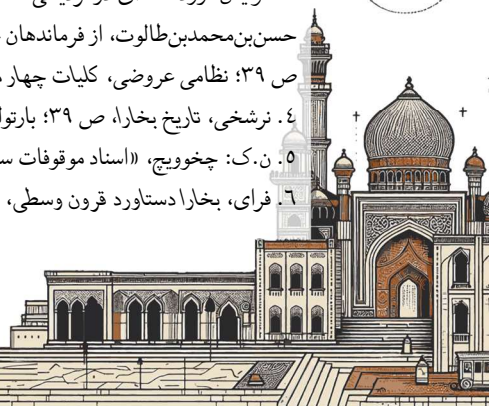 حسن‌بن‌محمدبن‌طالوت، از فرماندهان
ص ۳۹؛ نظامی عروضی، کلیات چهار
٤. نرشخی، تاریخ بخارا، ص ۳۹؛
٥. ن.ک: چخوویچ، «اسناد موقوفات
٦. فرای، بخارا دستاورد قرون وسطی،